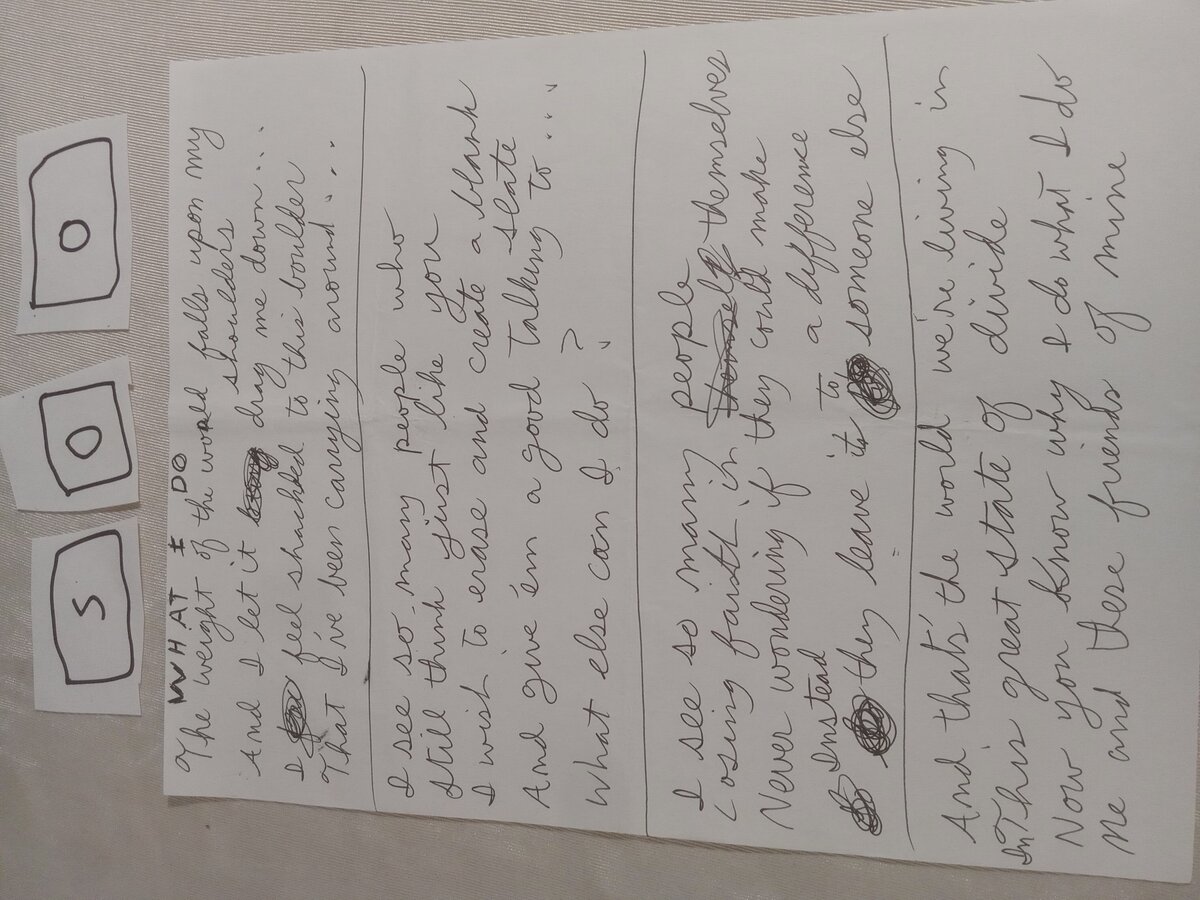 S
O
O
WHAT I DO
The weight of the world falls upon my
shoulders
And I let it drag me down...
I feel shackled to this boulder
That I've been carrying around....
I see so many people who
still think just like you
I wish to erase and create a blank
slate
And give 'em a good talking to....
What else can I do?
I see so many people
Losing faith in themselves
Never wondering if they could make
a difference
Instead
they leave it to someone else
And that's the world we're living in
In This great state of divide
Now you know why I do what I do
Me and these friends of mine